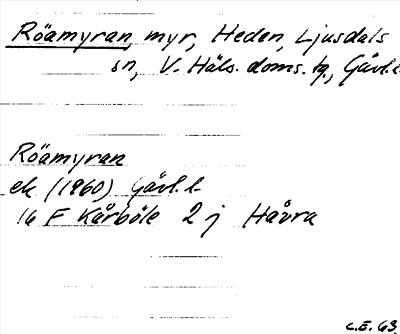 Röamyran, myr, Heden, Ljusdals
sn, V. Häls. doms. tg, Gävl.l.
Röamyran
ek (1960) Gävl.l.
16 F Kårböle 2 j Havra
C.E. 63.